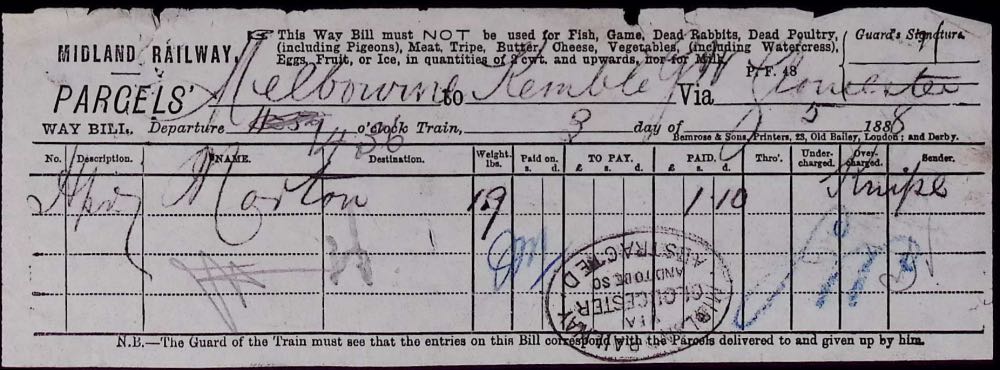 This Way Bill must NOT be used for Fish, Game, Dead Rabbits, Dead Poultry,
(including Pigeons), Meat, Tripe, Butter, Cheese, Vegetables, (including Watercress),
Eggs, Fruit, or Ice, in quantities of 2 cwt. and upwards, nor for Milk.
Guard's Signature
MIDLAND RAILWAY.
P. F. 48
PARCELS'
Melbourne to Kemble GW Via Gloucester
WAY BILL. Departure 4 36 o'clock Train, 3 day of 5 1888
Bemrose & Sons, Printers, 23, Old Bailey, London; and Derby.
No. Description. NAME. Destination. Weight lbs. Paid on. s. d. TO PAY. £ s. d. PAID. £ s. d. Thro'. Under-charged. Over-charged. Sender.
Hpr Morton 19 1 10 Knipe
MIDLAND RAILWAY
VIA
GLOUCESTER
AND TO BE SO
ABSTRACTED
N.B.—The Guard of the Train must see that the entries on this Bill correspond with the Parcels delivered to and given up by him.